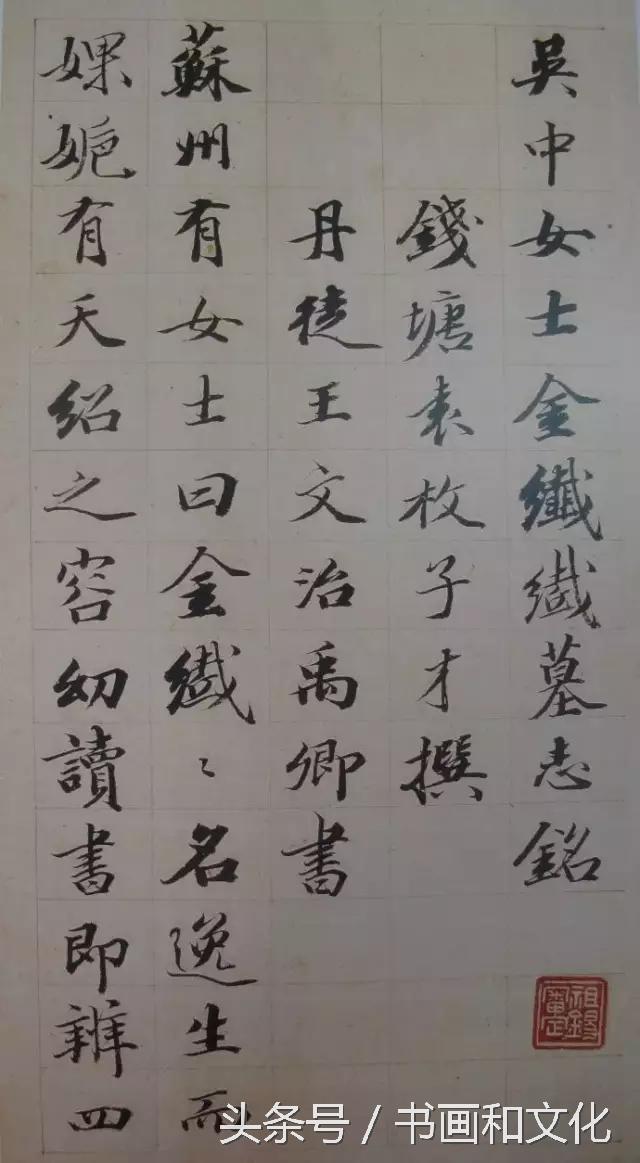 吳中女士金纖纖墓志銘
錢塘袁枚子才撰
丹徒王文治禹卿書
蘇州有女士曰金纖〻名逸生而
婐㛂有天紹之容幼讀書即辨四
头条号 / 书画和文化